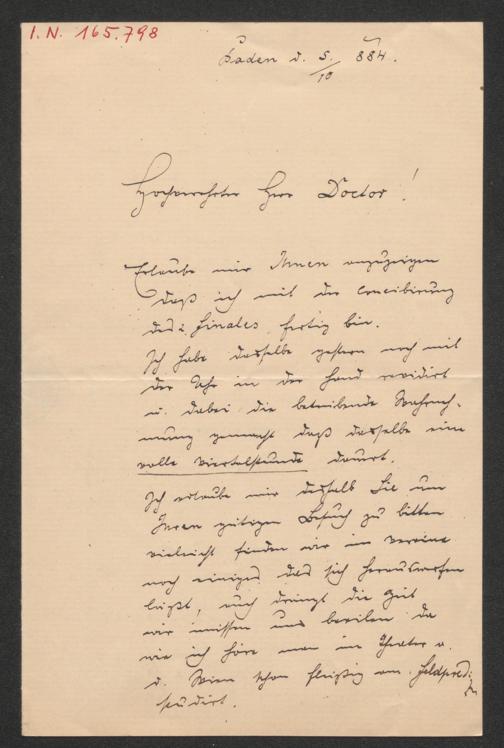 I.N. 165.798
Baden d. 5./10 884.
Hochverehrter Herr Doctor!
Erlaube mir Ihnen anzuzeigen
daß ich mit der Concibirung
des 2. Finales fertig bin.
Ich habe dasselbe gestern noch mit
der Uhr in der Hand revidirt
u. dabei die betrübende Wahrneh-
mung gemacht daß dasselbe eine
volle Viertelstunde dauert.
Ich erlaube mir deshalb Sie um
Ihren gütigen Besuch zu bitten
vieleicht finden wir im Vereine
noch einiges das sich herauswerfen
läßt, auch drängt die Zeit
wir müssen uns beeilen da
wie ich höre man im Theater a.
d. Wien schon fleißig am Feldpred:
studirt.